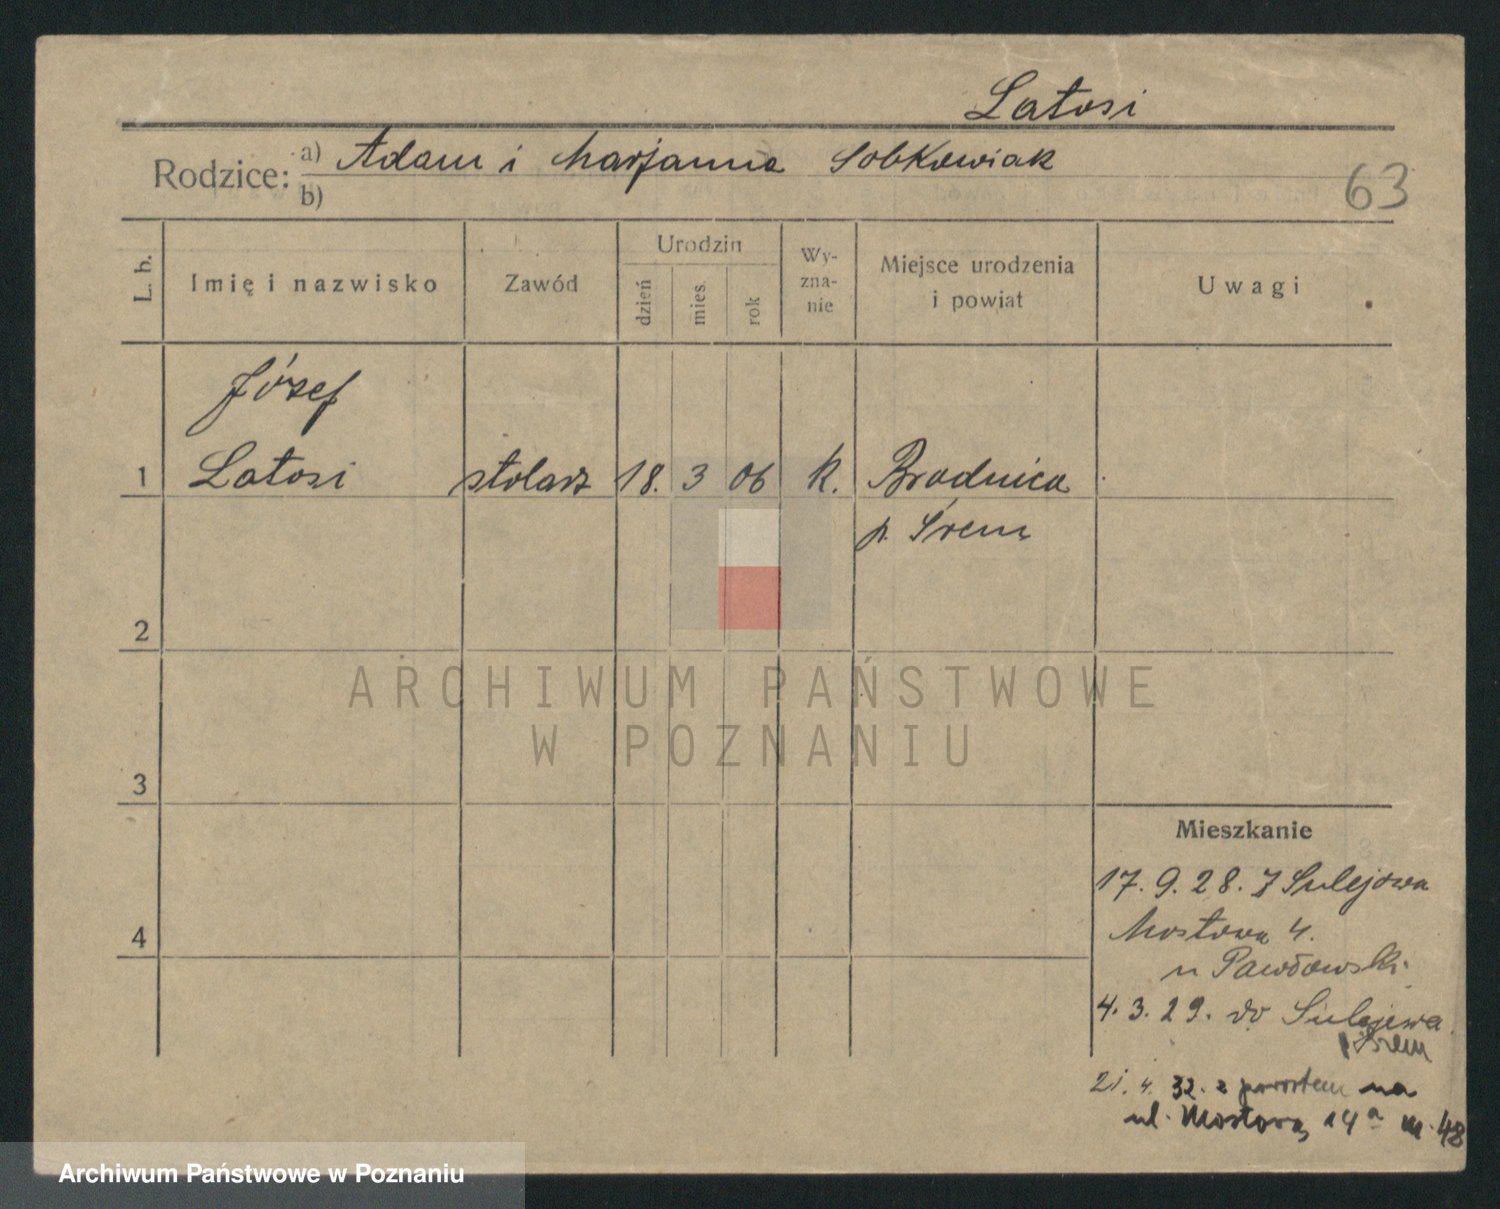 Latosi
Rodzice: a) Adam i Marjanna Sobkowiak
b)
63
L. b.
Imię i nazwisko
Zawód
Urodzin
dzień
mies.
rok
Wy-
zna-
nie
Miejsce urodzenia
i powiat
Uwagi
Józef
1 Latosi stolarz 18. 3 06 k. Brodnica
p. Śrem
2
3
4
ARCHIWUM PAŃSTWOWE
W POZNANIU
Mieszkanie
17. 9. 28. z Sulejewa
Mostowa 4.
u Pawłowski.
4. 3. 29. do Sulejewa
Śrem
21. 4. 32. z powrotem na
ul. Mostową 14a m. 48
Archiwum Państwowe w Poznaniu